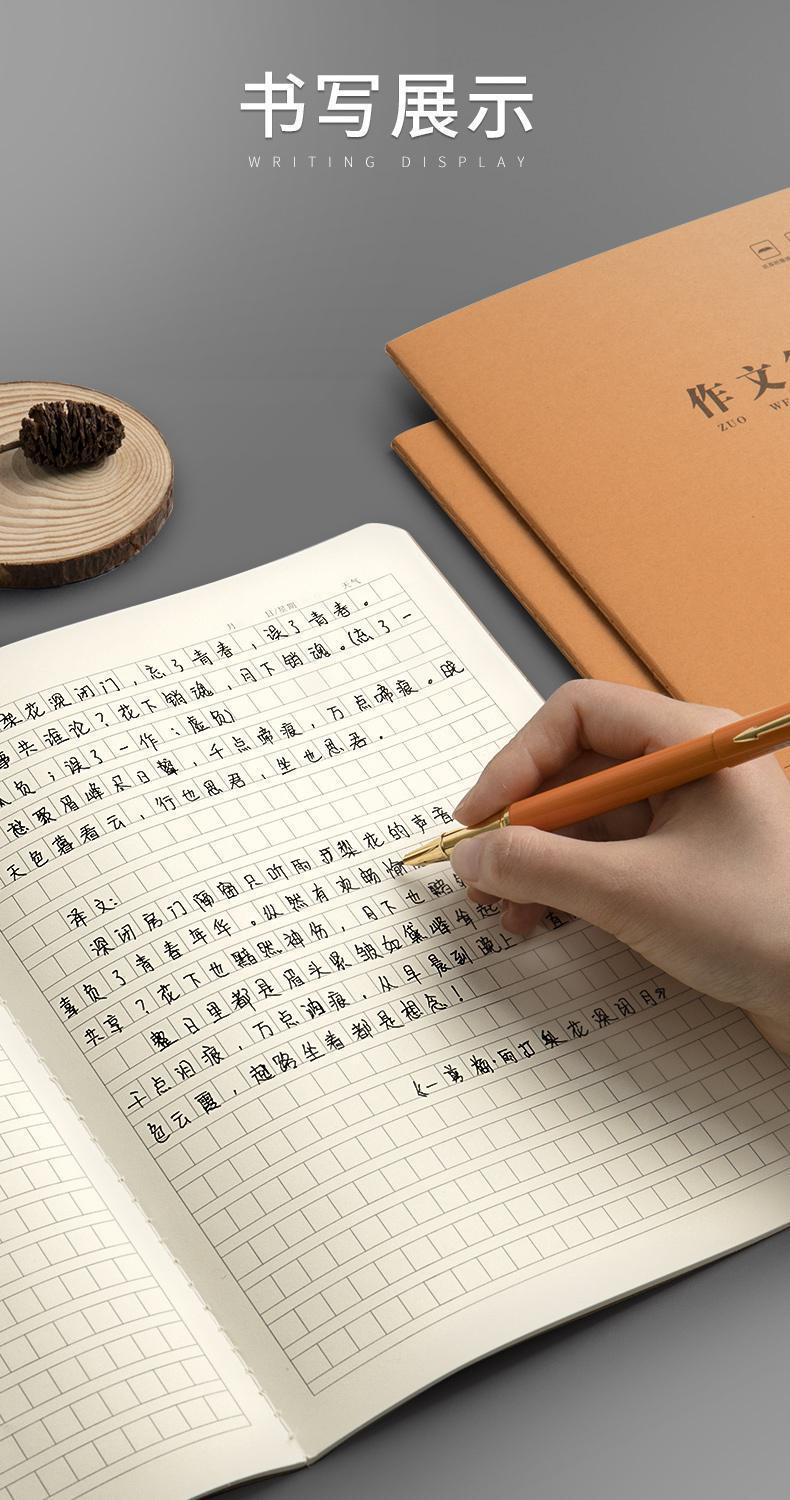 书写展示
WRITING DISPLAY
作文
ZUO WE
月 日/星期 天气
梨花深闭门，忘了青春，误了青春。
事共谁论？花下销魂，月下销魂。(忘了一
负；误了一作：虚负)
愁聚眉峰尽日颦，千点啼痕，万点啼痕。晓
天色暮看云，行也思君，坐也思君。
译文：
深闭房门隔窗只听雨打梨花的声音
辜负了青春年华。纵然有欢畅愉
共享？花下也黯然神伤，月下也黯
整日里都是眉头累皱如黛峰耸起
千点泪痕，万点泪痕，从早晨到晚上 直
色云霞，趟路坐着都是想念！
《一剪梅·雨打梨花深闭月》